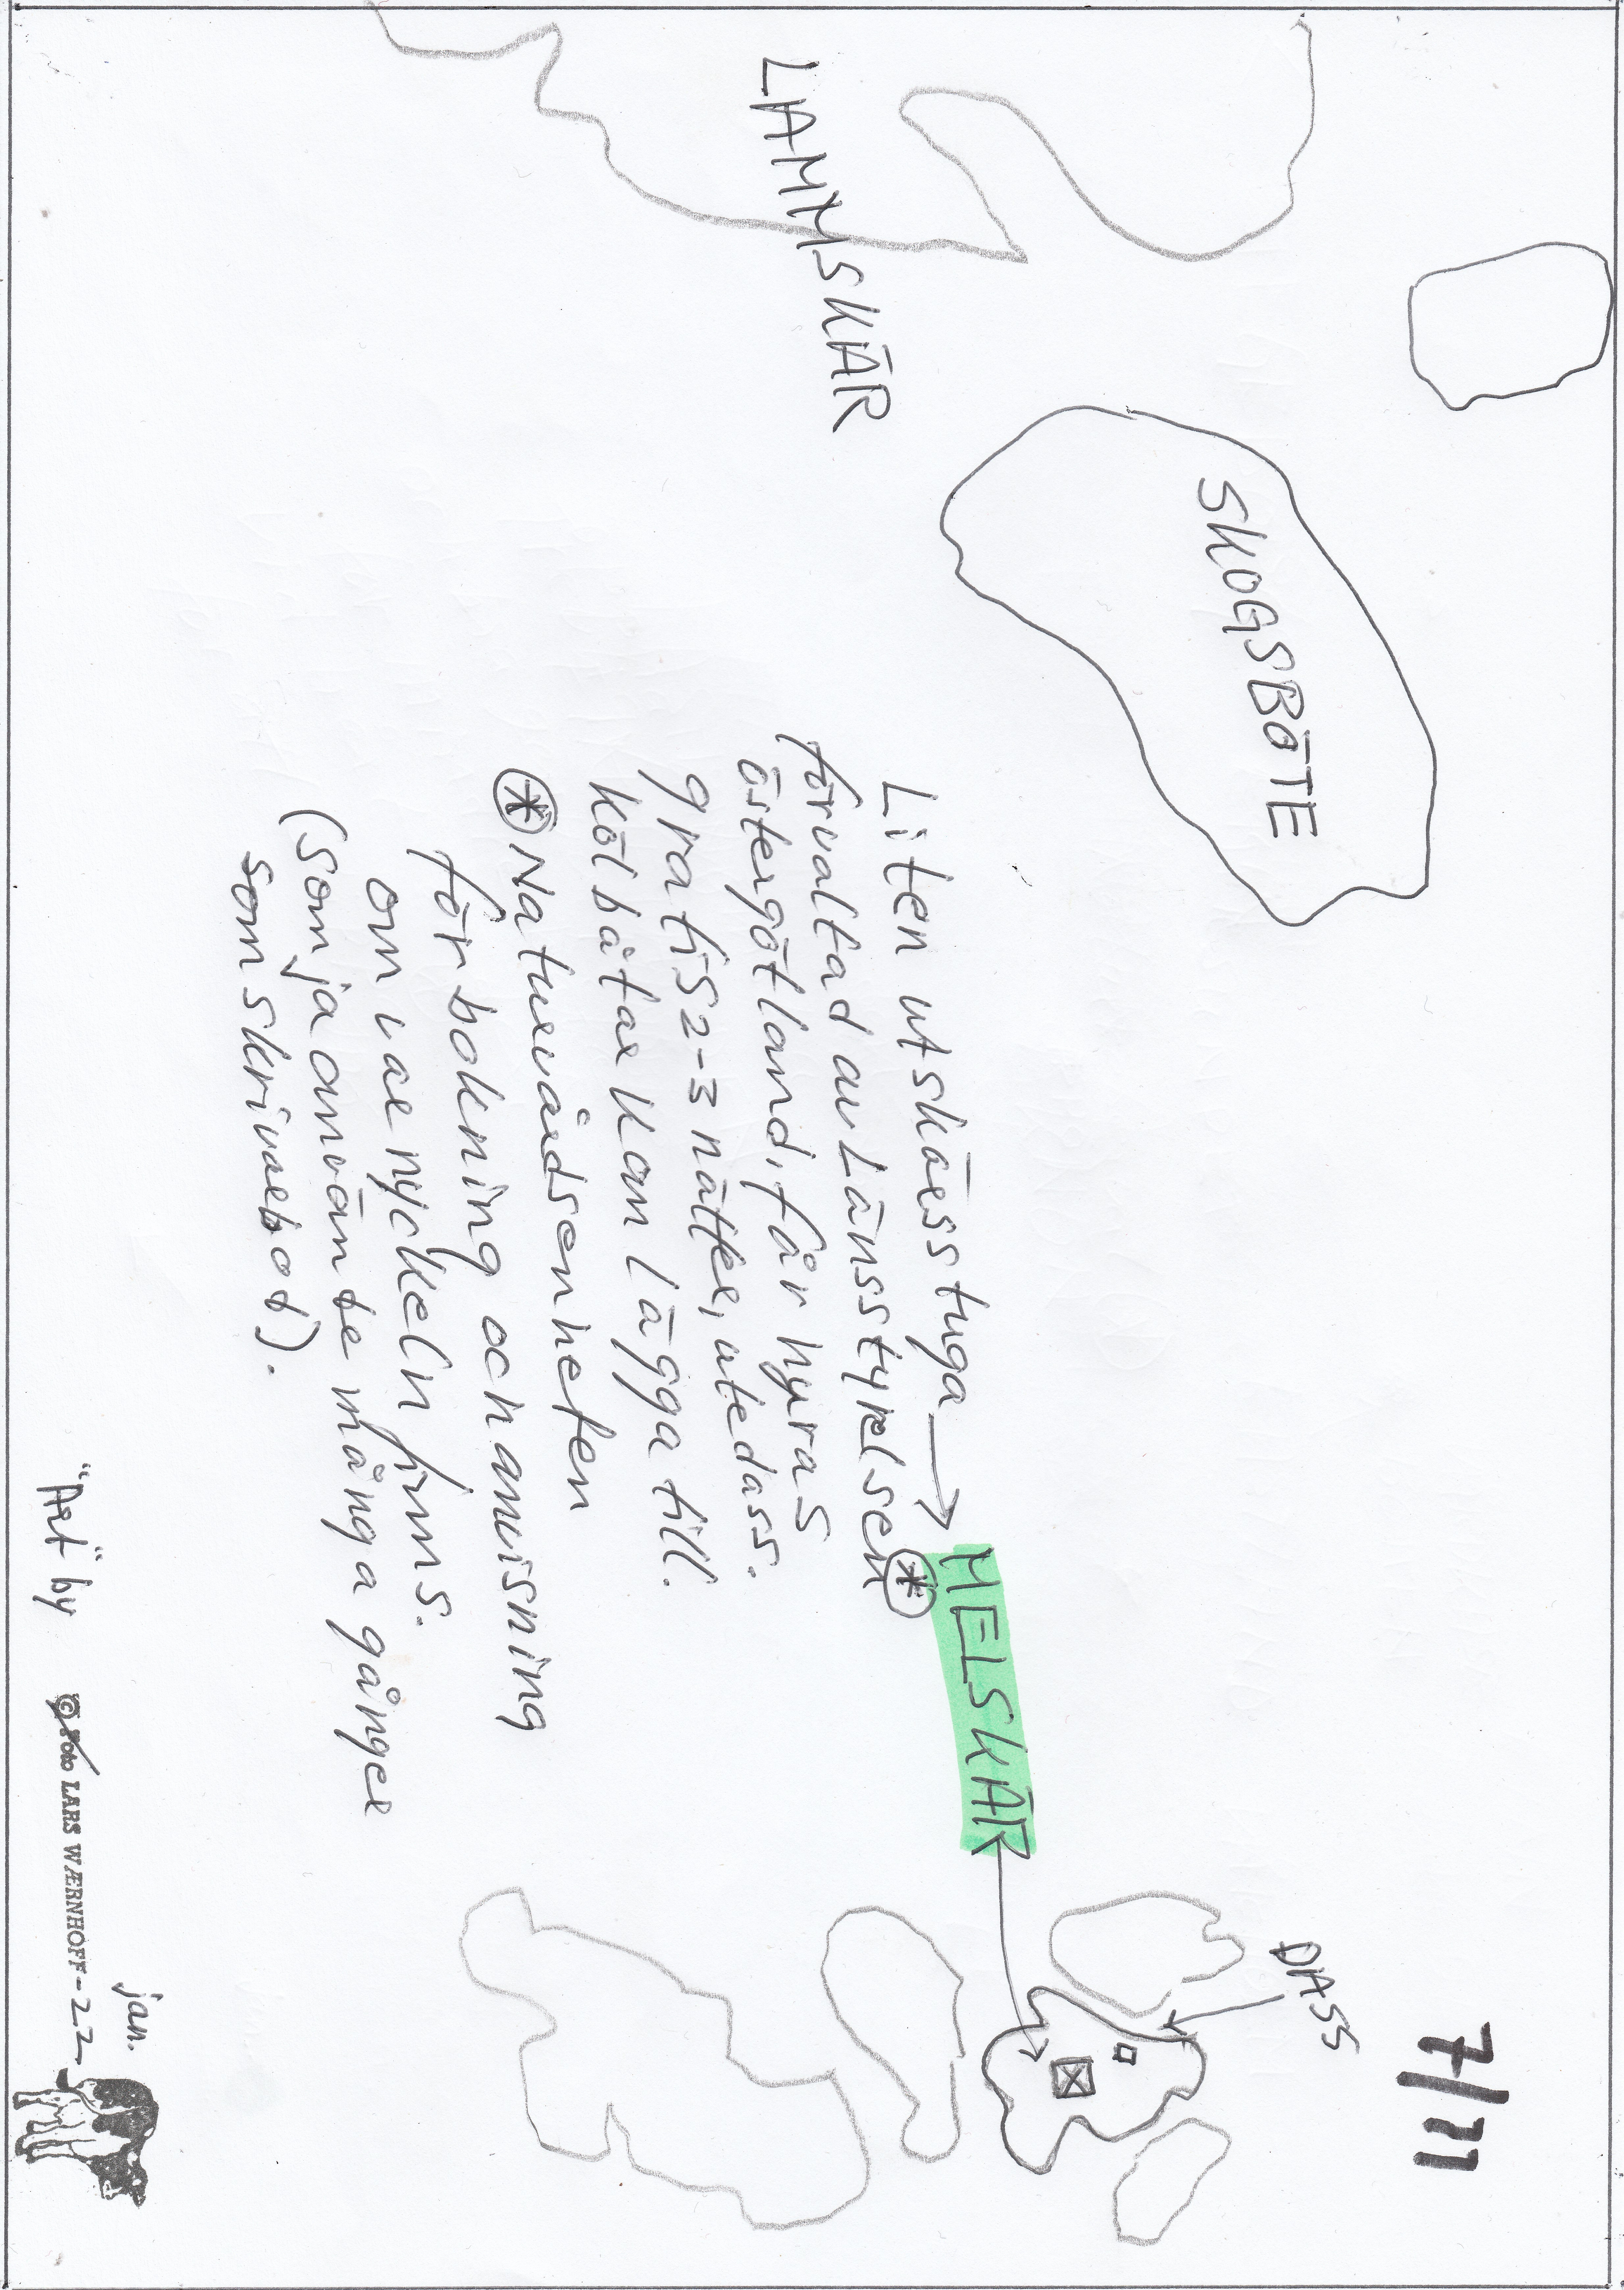 7/11
LAMMSKÄR
SKOGSBÖTE
DASS
HELSKÄR
Liten utskärsstuga
förvaltad av Länsstyrelsen *
Östergötland, får hyras
gratis 2-3 nätter, utedass.
Kölbåtar kan lägga till.
* Naturvårdsenheten
för bokning och anvisning
om var nyckeln finns.
(som ja använde många gånger
som skrivarbod).
jan.
"Art" by © LARS WÆRNHOFF -22